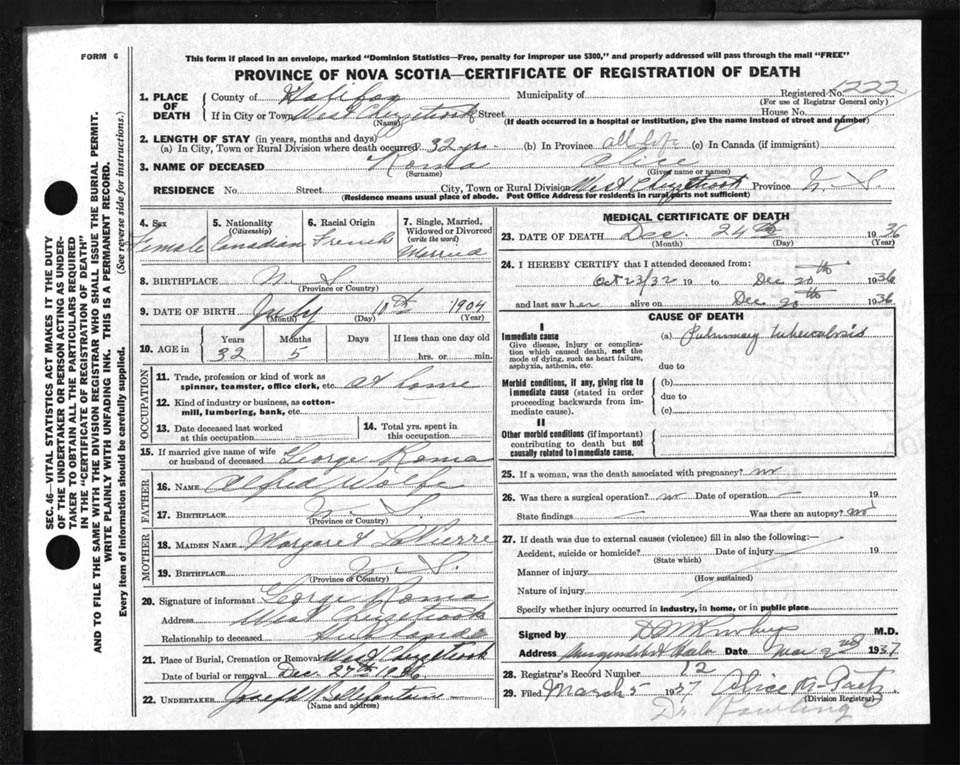 FORM 6
This form if placed in an envelope, marked "Dominion Statistics—Free, penalty for improper use $300," and properly addressed will pass through the mail "FREE"
PROVINCE OF NOVA SCOTIA—CERTIFICATE OF REGISTRATION OF DEATH
SEC. 46—VITAL STATISTICS ACT MAKES IT THE DUTY
OF THE UNDERTAKER OR PERSON ACTING AS UNDER-
TAKER TO OBTAIN ALL THE PARTICULARS REQUIRED
IN THE "CERTIFICATE OF REGISTRATION OF DEATH"
AND TO FILE THE SAME WITH THE DIVISION REGISTRAR WHO SHALL ISSUE THE BURIAL PERMIT.
WRITE PLAINLY WITH UNFADING INK. THIS IS A PERMANENT RECORD.
Every item of information should be carefully supplied. (See reverse side for instructions.)
1. PLACE OF DEATH
County of Halifax Municipality of Registered No. 1222
(For use of Registrar General only)
If in City or Town West Chezzetcook Street House No.
(Name) (If death occurred in a hospital or institution, give the name instead of street and number)
2. LENGTH OF STAY (in years, months and days)
(a) In City, Town or Rural Division where death occurred 32 yrs. (b) In Province all life (c) In Canada (if immigrant)
3. NAME OF DECEASED Roma Alice
(Surname) (Given name or names)
RESIDENCE No. Street City, Town or Rural Division West Chezzetcook Province N. S.
(Residence means usual place of abode. Post Office Address for residents in rural parts not sufficient)
4. Sex Female
5. Nationality (Citizenship) Canadian
6. Racial Origin French
7. Single, Married, Widowed or Divorced (write the word) Married
8. BIRTHPLACE N. S.
(Province or Country)
9. DATE OF BIRTH July 10th 1904
(Month) (Day) (Year)
10. AGE in Years 32 Months 5 Days If less than one day old hrs. or min.
OCCUPATION
11. Trade, profession or kind of work as
spinner, teamster, office clerk, etc. at home
12. Kind of industry or business, as cotton-
mill, lumbering, bank, etc.
13. Date deceased last worked
at this occupation
14. Total yrs. spent in
this occupation
15. If married give name of wife
or husband of deceased George Roma
FATHER
16. NAME Alfred Wolfe
17. BIRTHPLACE N. S.
(Province or Country)
MOTHER
18. MAIDEN NAME Margaret LaPierre
19. BIRTHPLACE N. S.
(Province or Country)
20. Signature of informant George Roma
Address West Chezzetcook
Relationship to deceased Husband
21. Place of Burial, Cremation or Removal West Chezzetcook
Date of burial or removal Dec. 27th 1936
22. UNDERTAKER Joseph Bellefontaine
(Name and address)
MEDICAL CERTIFICATE OF DEATH
23. DATE OF DEATH Dec. 24th 1936
(Month) (Day) (Year)
24. I HEREBY CERTIFY that I attended deceased from:
Oct 23/32 19 to Dec 20th 1936
and last saw her alive on Dec 20th 1936
CAUSE OF DEATH
I
Immediate cause
Give disease, injury or compli-
cation which caused death, not the
mode of dying, such as heart failure,
asphyxia, asthenia, etc.
(a) Pulmonary tuberculosis
due to
Morbid conditions, if any, giving rise to
immediate cause (stated in order
proceeding backwards from im-
mediate cause).
(b)
due to
(c)
II
Other morbid conditions (if important)
contributing to death but not
causally related to immediate cause.
25. If a woman, was the death associated with pregnancy? no
26. Was there a surgical operation? no Date of operation — 19
State findings — Was there an autopsy? no
27. If death was due to external causes (violence) fill in also the following:—
Accident, suicide or homicide? Date of injury 19
(State which)
Manner of injury
(How sustained)
Nature of injury
Specify whether injury occurred in industry, in home, or in public place
Signed by M.D.
Address Date Mar 2nd 1937
28. Registrar's Record Number 12
29. Filed March 5 1937 Alice M.
(Division Registrar)
Dr. Rowling